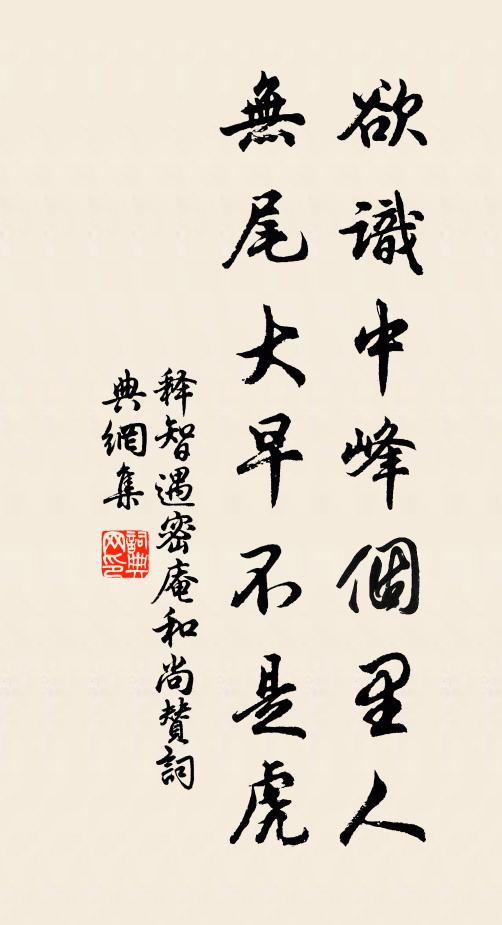 欲識中峰個里人
無尾大早不是虎
释智遇密庵和尚賛詞
典網集
詞典网印